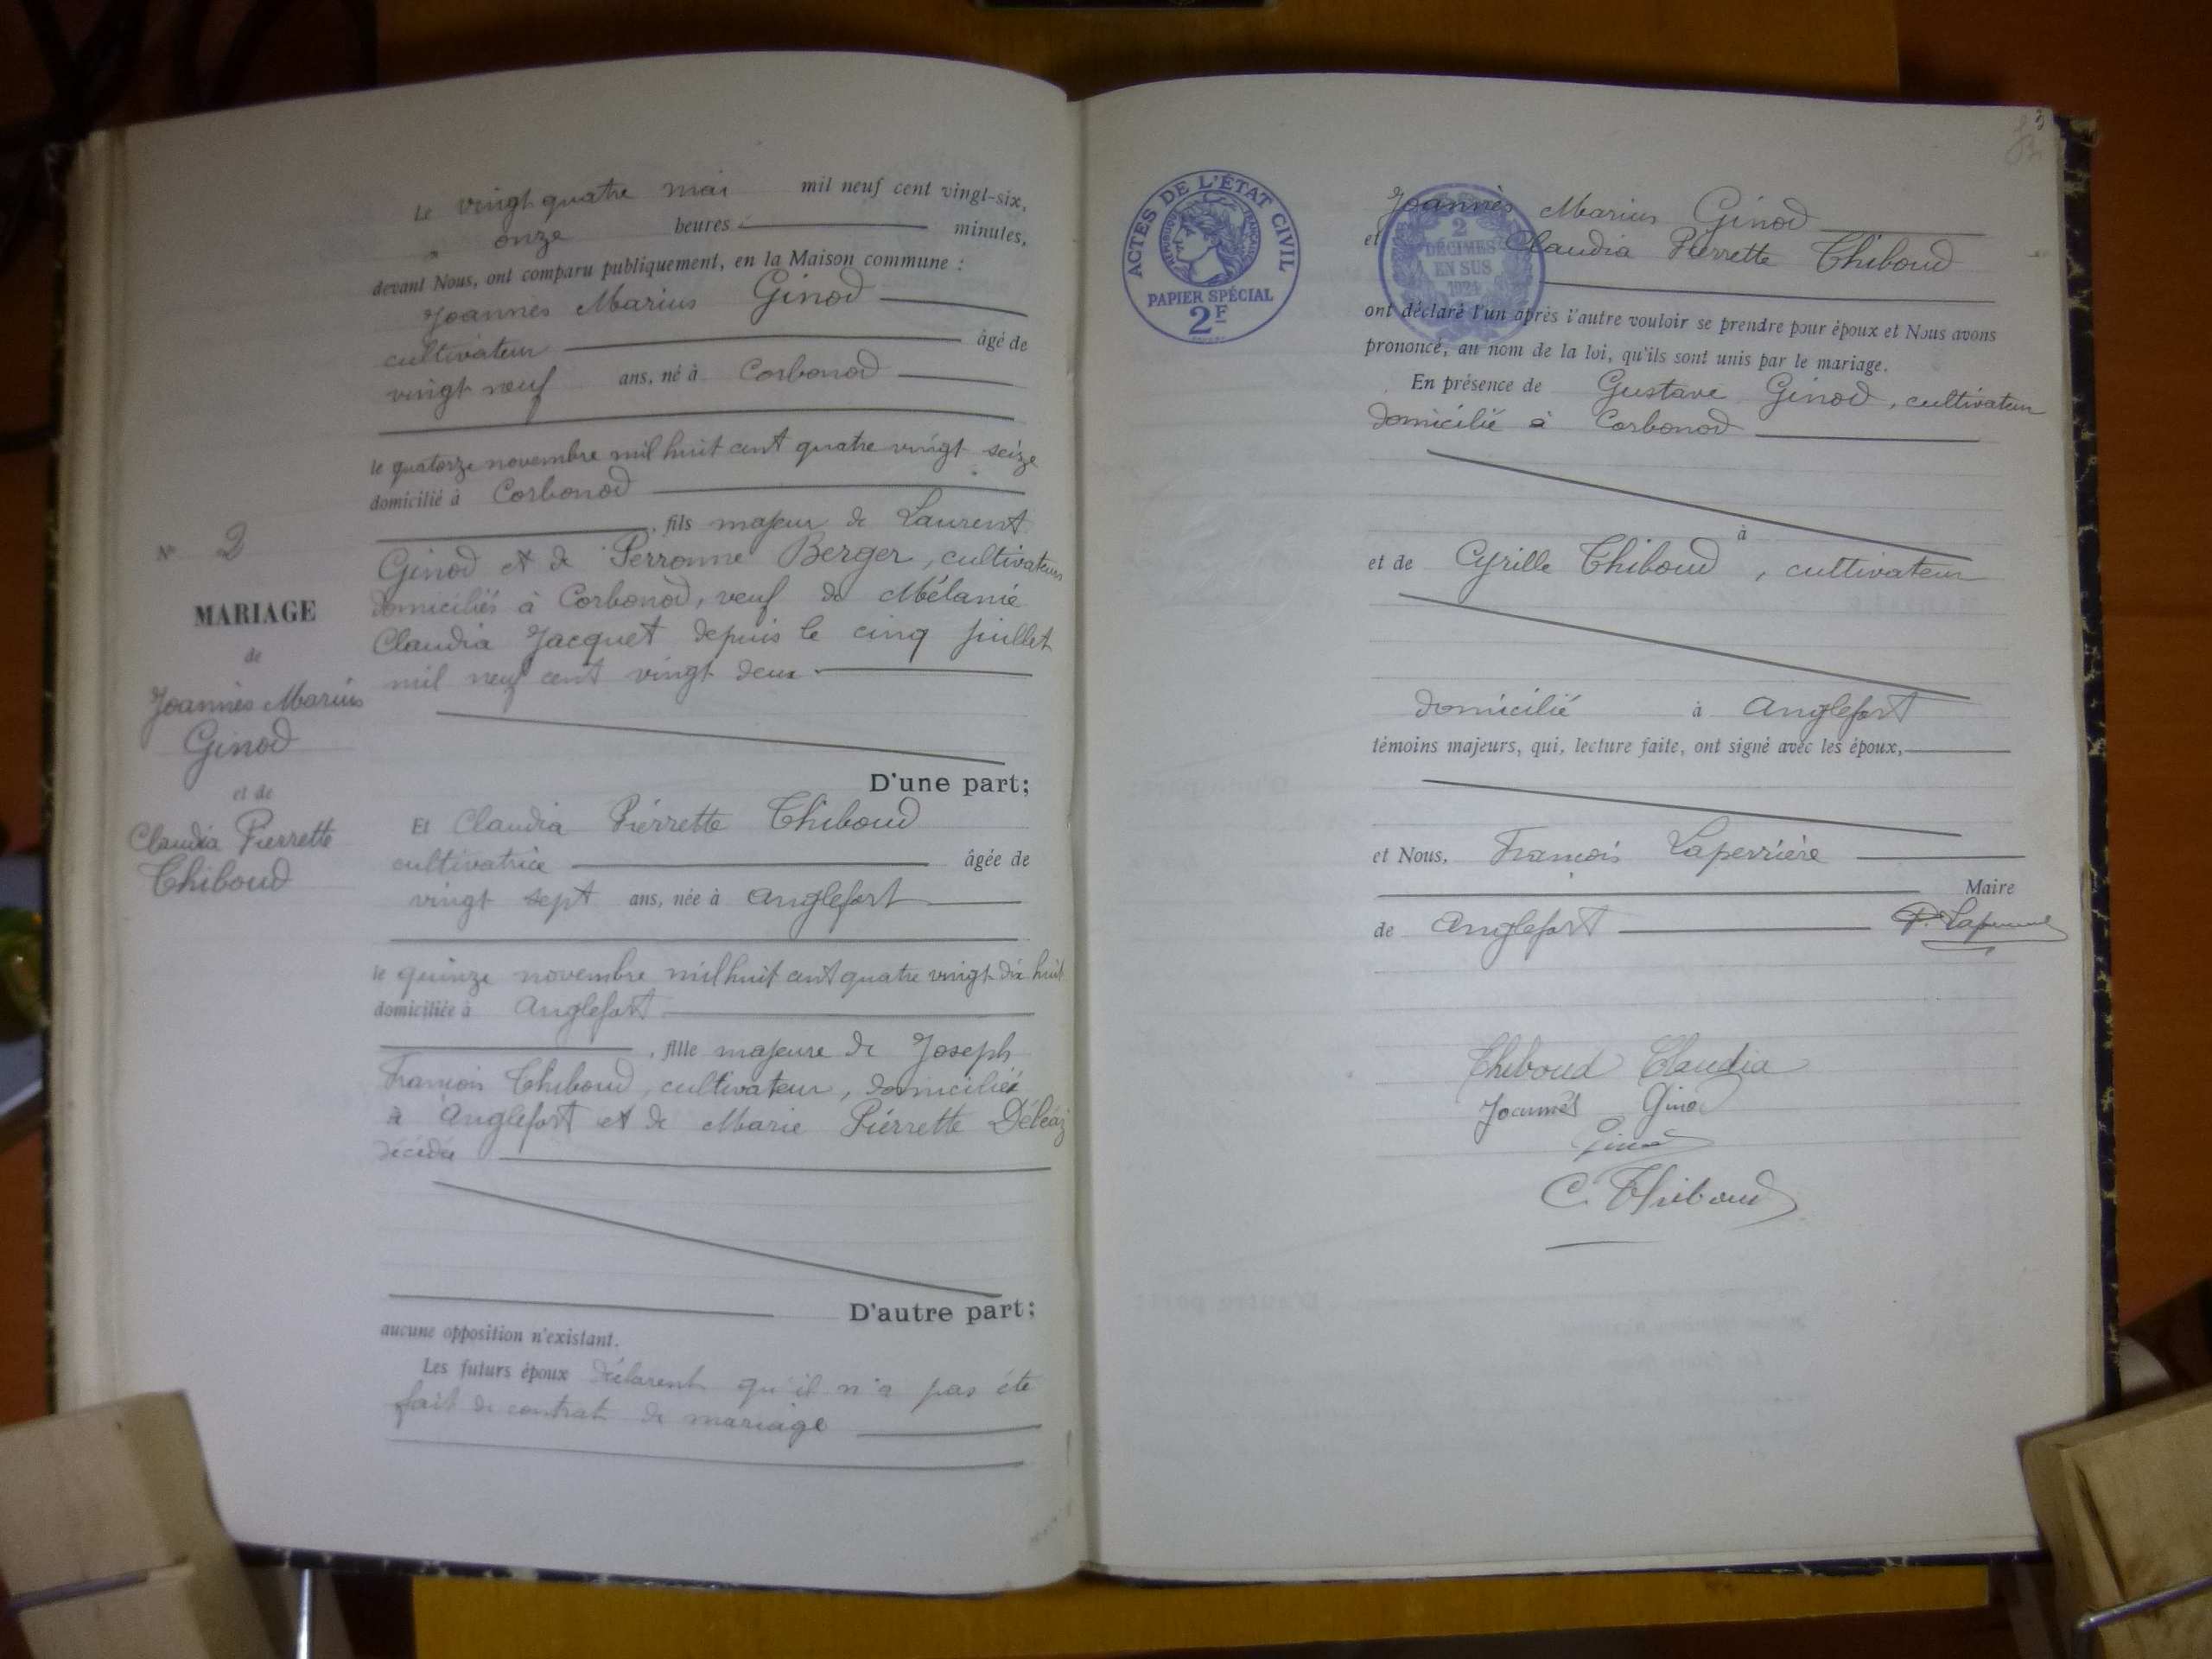 Le vingt quatre mai mil neuf cent vingt-six,
" onze heures minutes,
devant Nous, ont comparu publiquement, en la Maison commune :
Joannès Marius Ginod
cultivateur âgé de
vingt neuf ans, né à Corbonod
le quatorze novembre mil huit cent quatre vingt seize
domicilié à Corbonod
, fils majeur de Laurent
Ginod et de Perronne Berger, cultivateurs
domiciliés à Corbonod, veuf de Mélanie
Claudia Jacquet depuis le cinq juillet
mil neuf cent vingt deux
D'une part;
Et Claudia Pierrette Thiboud
cultivatrice âgée de
vingt sept ans, née à Anglefort
le quinze novembre mil huit cent quatre vingt dix huit
domiciliée à Anglefort
, fille majeure de Joseph
François Thiboud, cultivateur, domicilié
à Anglefort et de Marie Pierrette Déléaz
décédée
D'autre part;
aucune opposition n'existant.
Les futurs époux déclarent qu'il n'a pas été
fait de contrat de mariage
N° 2
MARIAGE
de
Joannès Marius
Ginod
et de
Claudia Pierrette
Thiboud
ACTES DE L'ÉTAT CIVIL
RÉPUBLIQUE FRANÇAISE
PAPIER SPÉCIAL
2F
2
DÉCIMES
EN SUS
1921
Joannès Marius Ginod
et Claudia Pierrette Thiboud
ont déclaré l'un après l'autre vouloir se prendre pour époux et Nous avons
prononcé, au nom de la loi, qu'ils sont unis par le mariage.
En présence de Gustave Ginod, cultivateur
domicilié à Corbonod
à
et de Cyrille Thiboud, cultivateur
domicilié à Anglefort
témoins majeurs, qui, lecture faite, ont signé avec les époux,
et Nous, François Laperrière
Maire
de Anglefort
Thiboud Claudia
Joannès Ginod
Ginod
C. Thiboud